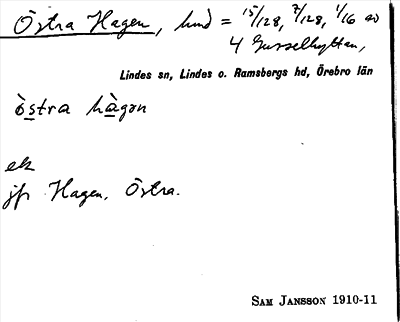 Östra Hagen, hmd = 15/128, 7/128, 1/16 av
4 Gusselhyttan,
Lindes sn, Lindes o. Ramsbergs hd, Örebro län
ö̀stra hàgən
ek
jfr Hagen, Östra.
SAM JANSSON 1910-11